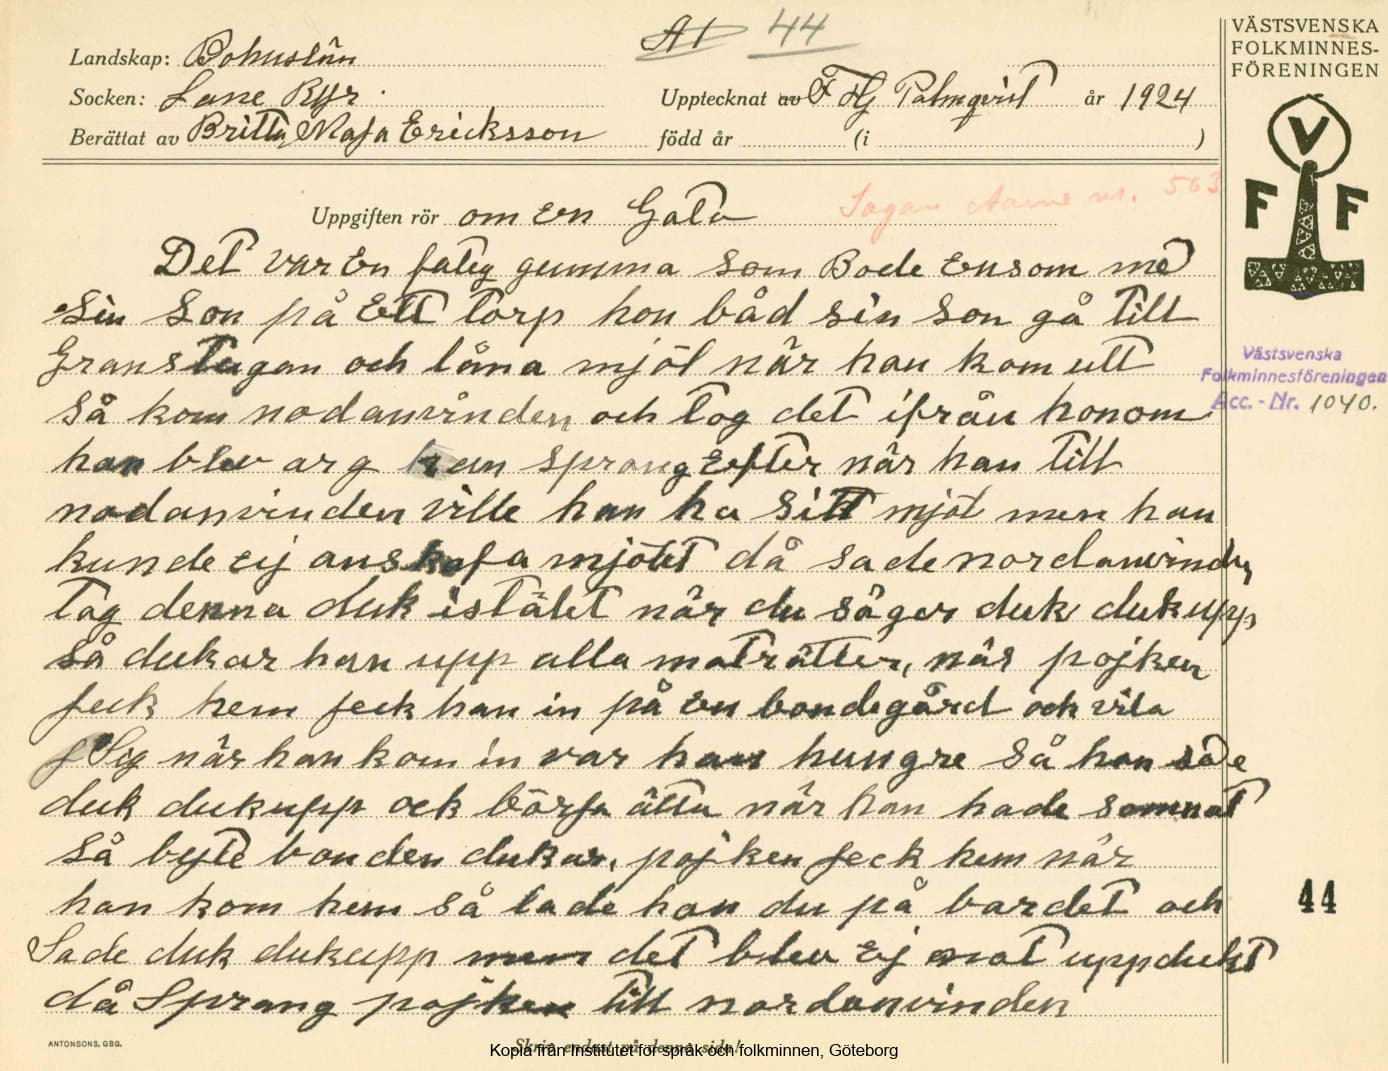 At 44
VÄSTSVENSKA
FOLKMINNES-
FÖRENINGEN
Landskap: Bohuslän
Socken: Lane Ryr
Upptecknat av F Hj Palmqvist år 1924
Berättat av Britta Maja Ericksson född år (i )
V
F F
Uppgiften rör om en Gåta
Sagan Aarne nr. 563
Det var En fatig gumma som Bode Ensom med
Sin Son på Ett torp hon båd sin Son gå till
Granstugan och låna mjöl när han kom utt
Så kom nodanvinden och tog det ifrån honom
han blev arg han sprang Efter när han till
nodanvinden ville han ha Sitt mjöl men han
kunde Eij anskafa mjölet då sade nordanvinden
tag denna duk istälet när du säger duk dukupp
så dukar han upp alla maträtter, när pojken
feck hem feck han in på En bondegård och vila
Sig när han kom in var han hungre Så han sade
duk dukupp ock börja ätta när han hade somnat
Så bytte bonden dukar, pojken feck hem när
han kom hem så lade han du på bordet och
Sade duk dukupp men det blev Ej mat uppdukt
då Sprang pojken till nordanvinden
Västsvenska
Folkminnesföreningen
Acc. - Nr. 1040.
44
ANTONSONS, GBG.
Skriv endast på denna sida!
Kopia från Institutet för språk och folkminnen, Göteborg